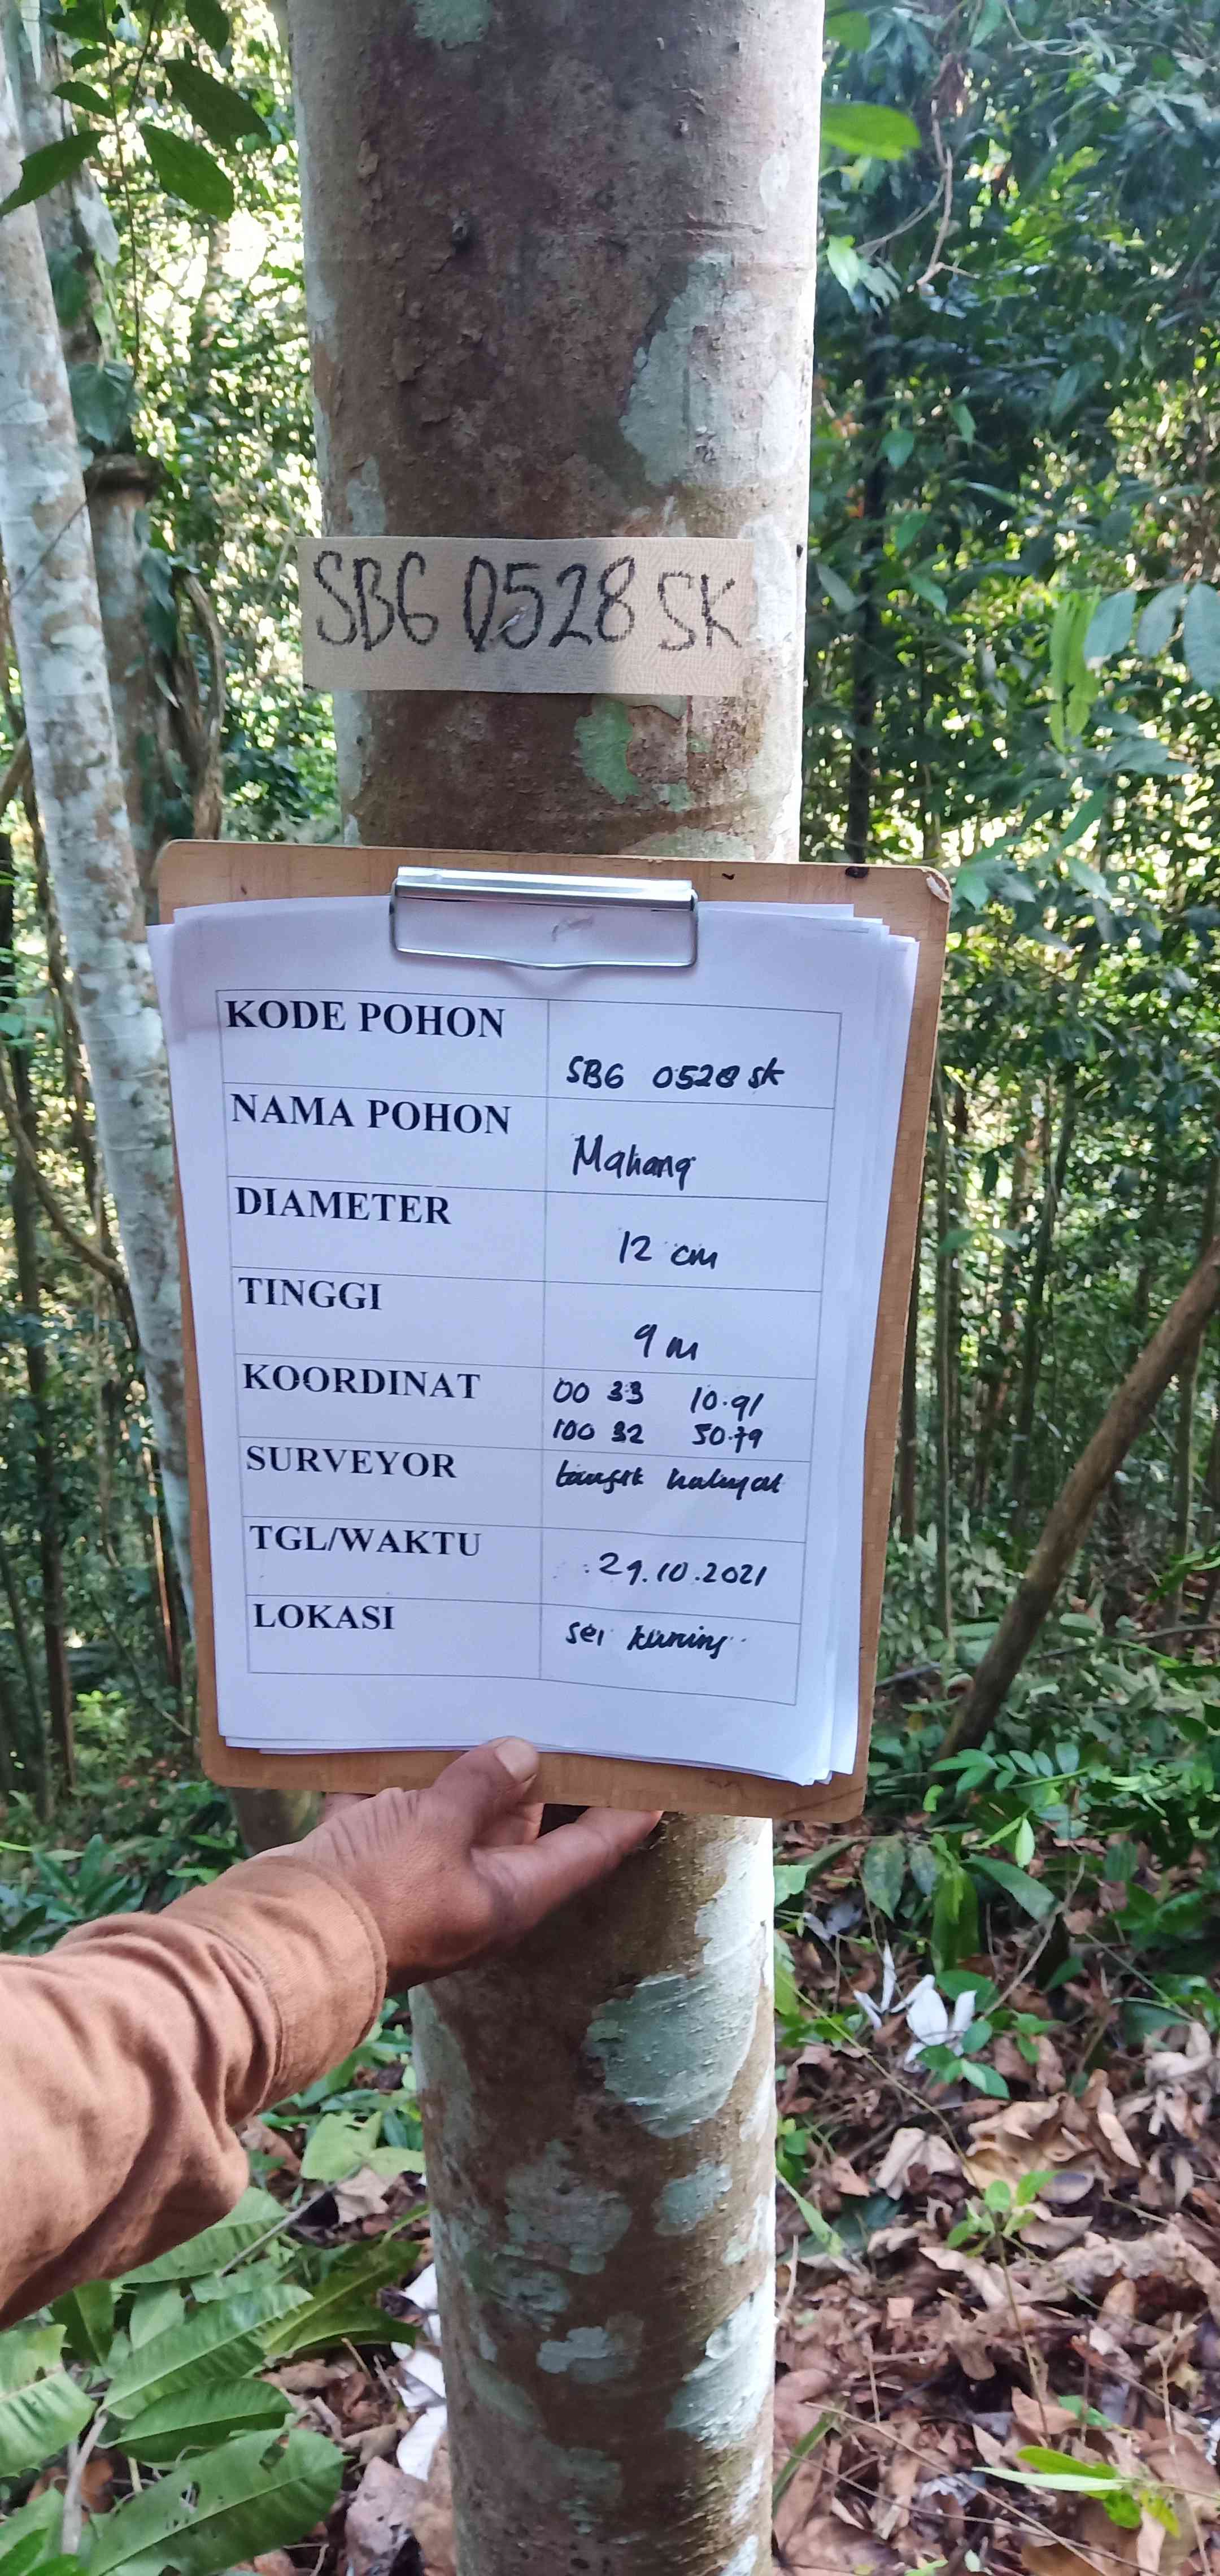 SBG 0528 SK
KODE POHON
SBG 0528 SK
NAMA POHON
Mahang
DIAMETER
12 cm
TINGGI
9 m
KOORDINAT
00 33 10.91
100 32 50.79
SURVEYOR
taufik hidayat
TGL/WAKTU
29.10.2021
LOKASI
sei kuning